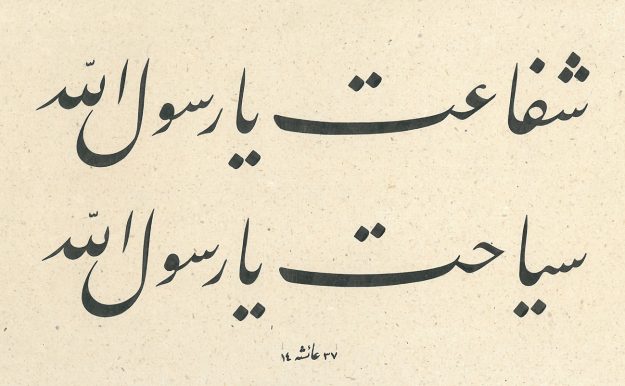 شفاعت یا رسول الله
سیاحت یا رسول الله
٣٧ عائشه ١٤